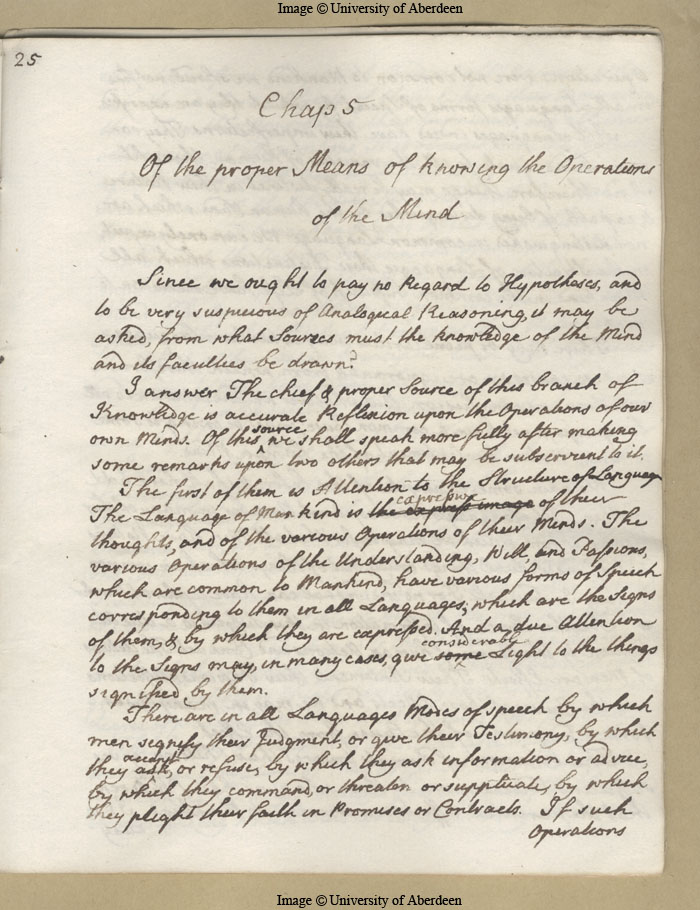 Image © University of Aberdeen
25
Chap 5
Of the proper Means of knowing the Operations
of the Mind
Since we ought to pay no Regard to Hypotheses, and
to be very suspicious of Analogical Reasoning, it may be
asked, from what Sources must the knowledge of the Mind
and its faculties be drawn?
I answer The chief & proper Source of this branch of
Knowledge is accurate Reflexion upon the Operations of our
source
own Minds. Of this we shall speak more fully after making
some remarks upon two others that may be subservient to it.
The first of them is Attention to the Structure of Language
expressive
The Language of Mankind is the express image of their
thoughts, and of the various Operations of their Minds. The
various Operations of the Understanding, Will, and Passions,
which are common to Mankind, have various forms of Speech
corresponding to them in all Languages, which are the Signs
of them, & by which they are expressed. And a due Attention
considerable
to the Signs may, in many cases, give some Light to the things
signified by them.
There are in all Languages Modes of speech by which
men signify their Judgment, or give their Testimony, by which
accept
they ask, or refuse, by which they ask information or advice,
by which they command, or threaten or supplicate, by which
they plight their faith in Promises or Contracts. If such
Operations
Image © University of Aberdeen